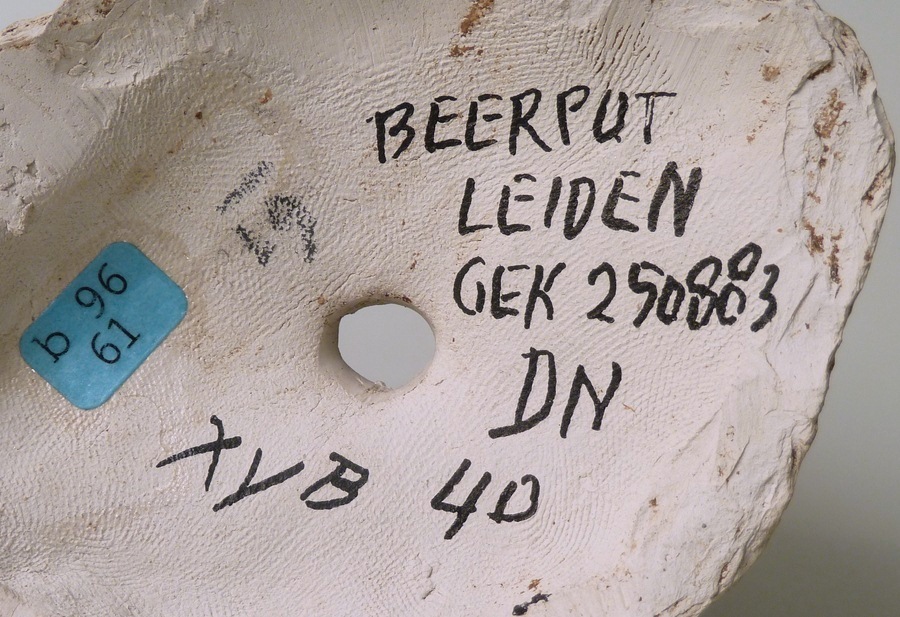 BEERPUT
LEIDEN
GEK 250883
DN
XVB 40
b 96
61